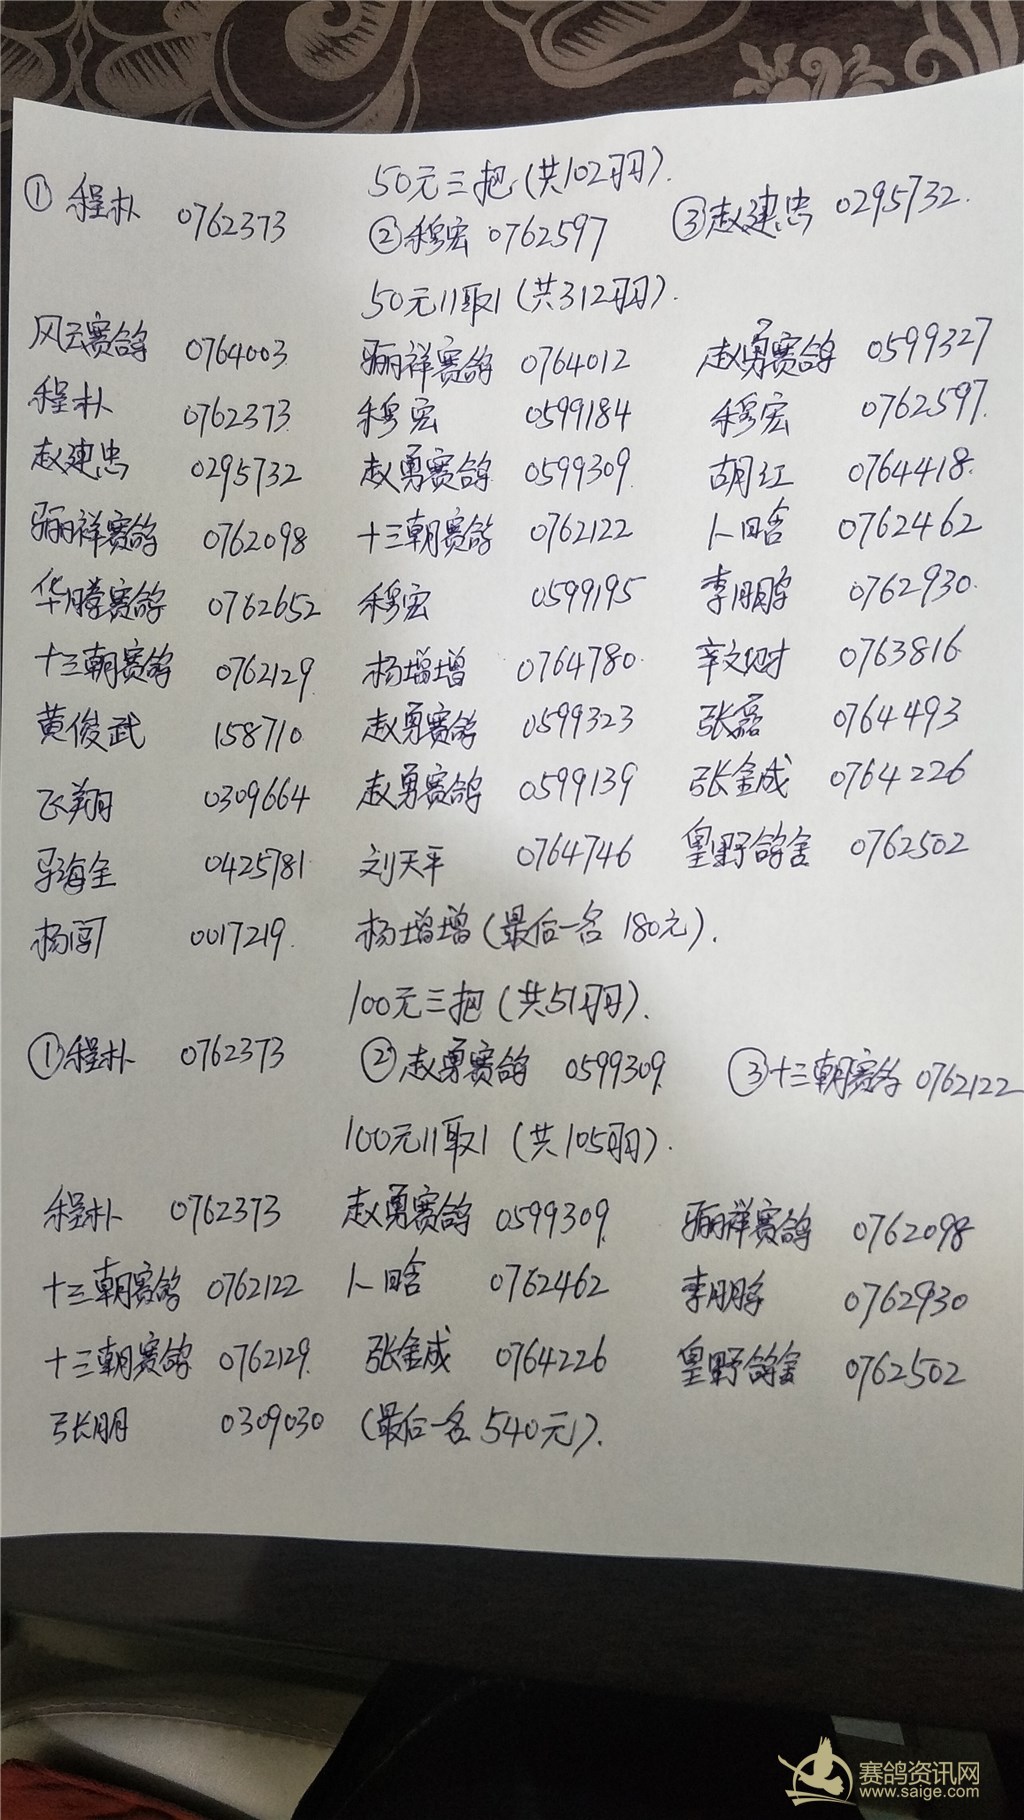 50元三把(共102羽).
①程朴 0762373 ②穆宏 0762597 ③赵建忠 0295732.
50元11取1(共312羽).
风云赛鸽 0764003 骊祥赛鸽 0764012 赵勇赛鸽 0599327
程朴 0762373 穆宏 0599184 穆宏 0762597
赵建忠 0295732 赵勇赛鸽 0599309 胡江 0764418
骊祥赛鸽 0762098 十三朝赛鸽 0762122 0762462
华腾赛鸽 0762652 穆宏 0599195 李鹏 0762930
十三朝赛鸽 0762129 杨增增 0764780 辛文财 0763816
黄俊武 158710 赵勇赛鸽 0599323 张磊 0764493
飞翔 0309664 赵勇赛鸽 0599139 张金成 0764226
马海全 0425781 刘天平 0764746 皇野鸽舍 0762502
杨闯 0017219 杨增增(最后一名 180元).
100元三把(共51羽).
①程朴 0762373 ②赵勇赛鸽 0599309 ③十三朝赛鸽 0762122
100元11取1 (共105羽).
程朴 0762373 赵勇赛鸽 0599309 骊祥赛鸽 0762098
十三朝赛鸽 0762122 0762462 李鹏 0762930
十三朝赛鸽 0762129 张金成 0764226 皇野鸽舍 0762502
张朋 0309030 (最后一名 540元).
赛鸽资讯网
www.saige.com